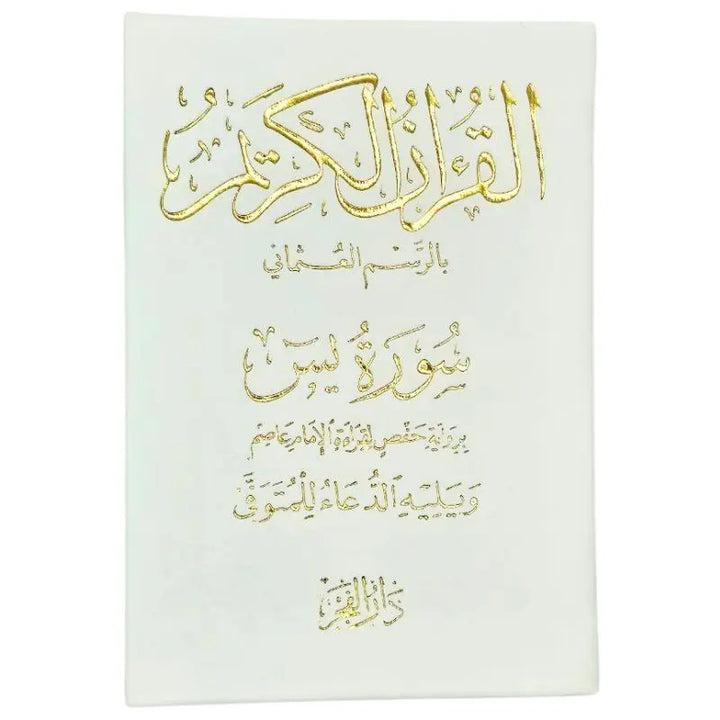 القرآن الكريم
بالرسم العثماني
سورة يس
برواية حفص لقراءة الإمام عاصم
ويليه الدعاء للمتوفى
دار الفجر